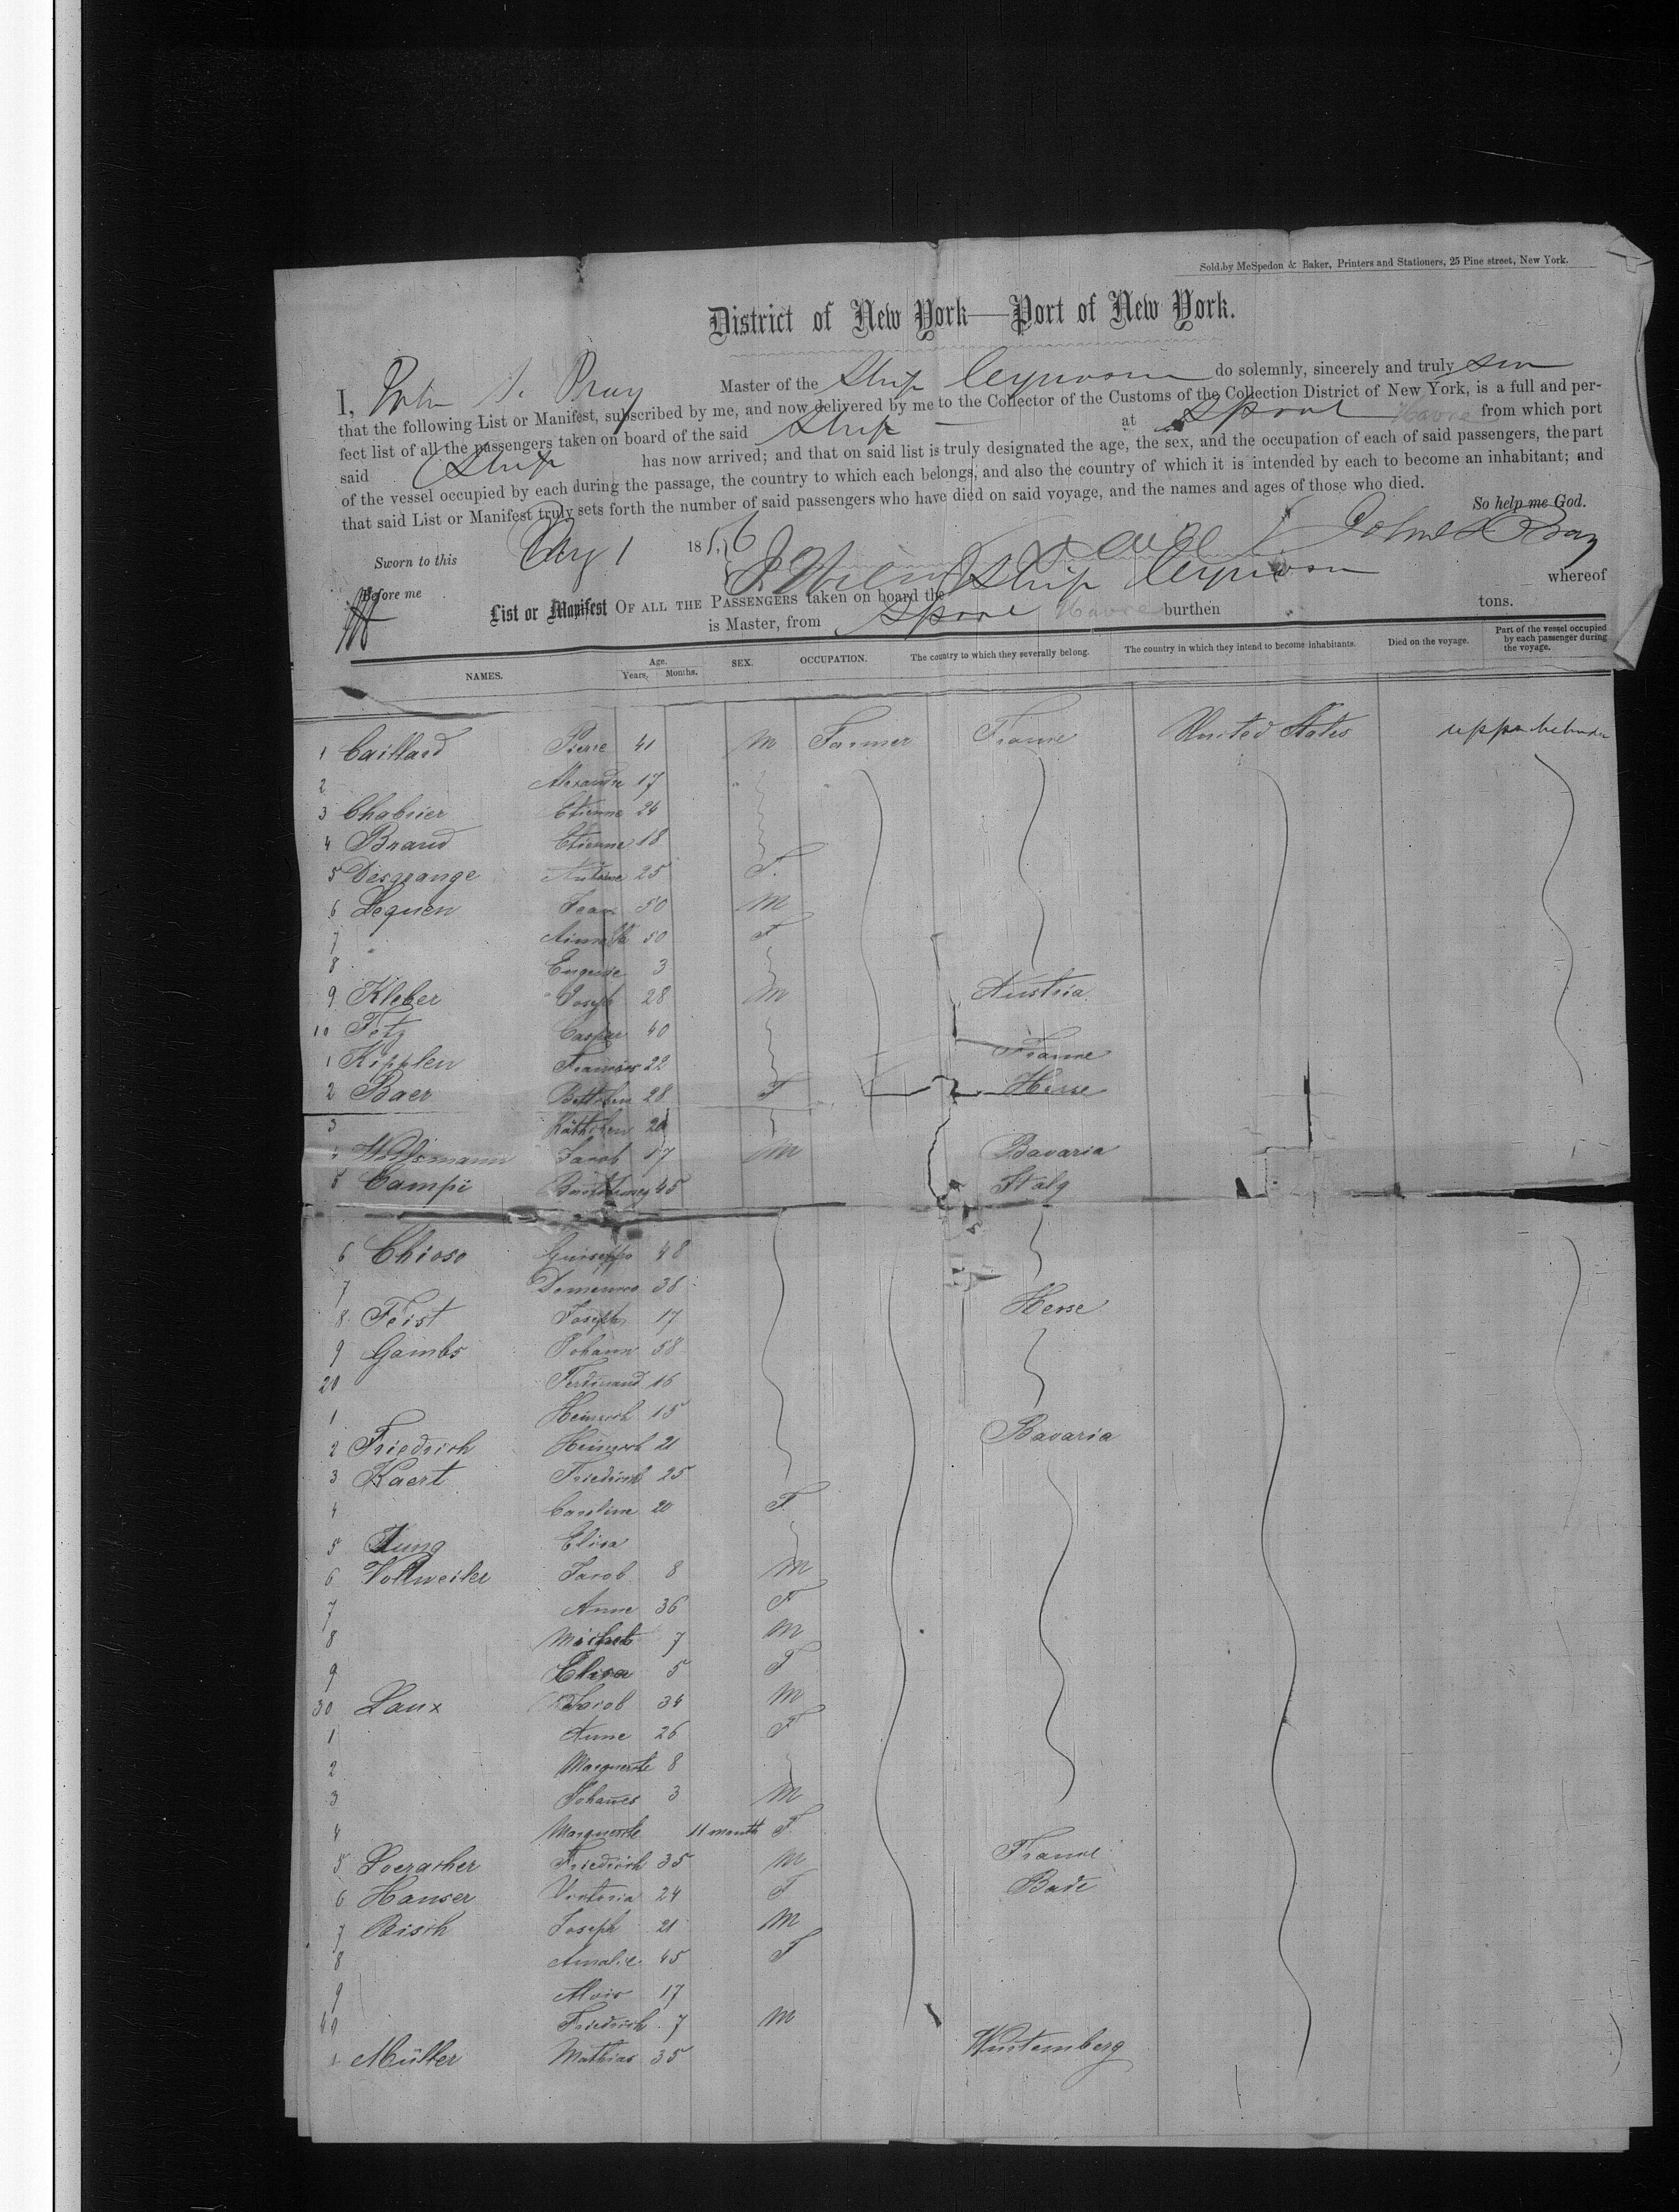 Sold by McSpedon & Baker, Printers and Stationers, 25 Pine street, New York.
District of New York—Port of New York.
I, John S. Pray Master of the Ship Cynosure do solemnly, sincerely and truly
that the following List or Manifest, subscribed by me, and now delivered by me to the Collector of the Customs of the Collection District of New York, is a full and per-
fect list of all the passengers taken on board of the said Ship at Havre from which port
said Ship has now arrived; and that on said list is truly designated the age, the sex, and the occupation of each of said passengers, the part
of the vessel occupied by each during the passage, the country to which each belongs, and also the country of which it is intended by each to become an inhabitant; and
that said List or Manifest truly sets forth the number of said passengers who have died on said voyage, and the names and ages of those who died.
So help me God.
Sworn to this 1 1856 John S Pray
Before me
List or Manifest OF ALL THE PASSENGERS taken on board the Ship Cynosure whereof
is Master, from Havre burthen tons.
NAMES. Age. Years. Months. SEX. OCCUPATION. The country to which they severally belong. The country in which they intend to become inhabitants. Died on the voyage. Part of the vessel occupied by each passenger during the voyage.
1 Caillard Pierre 41 M Farmer France United States upper
2 Alexandre 17 " "
3 Chabrier Etienne 24
4 Braud Etienne 18
5 Desgrange Antoine 25 F.
6 Lequen Jean 50 M
7 " 50 F
8 Eugenie 3
9 Kleber Joseph 28 M Austria
10 Fetz Caspar 40
1 Kipplen Francois 22 France
2 Baer Bettchen 28 F Hesse
3 Käthchen 20
4 Jacob 17 M Bavaria
5 Campi Bartholomey 45 Italy
6 Chioso Guiseppo 48
7 Domenico 38
8 Feist Joseph 17 Hesse
9 Gambs Johann 58
20 Ferdinand 16
1 Heinrich 15
2 Friedrich Heinrich 21 Bavaria
3 Kaert Friedrich 25
4 Caroline 20 F
5 Jung Elisa
6 Vollweiler Jacob 8 M
7 Anne 36 F
8 Michel 7 M
9 Elisa 5 F
30 Laux Jacob 34 M
1 Anne 26 F
2 Marguerite 8
3 Johannes 3 M
4 Marguerite 11 month F
5 Loeracher Friedrich 35 M France
6 Hauser Victoria 24 F Bade
7 Bisch Joseph 21 M
8 Amalie 45 F
9 Alois 17
40 Friedrich 7 M
1 Müller Mathias 35 Wurtemberg